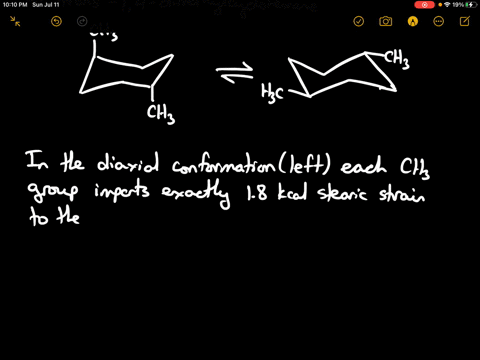 10:10 PM Sun Jul 11
19%
CH3
CH3
H3C
CH3
In the diaxial conformation (left) each CH3
group imparts exactly 1.8 kcal stearic strain
to the